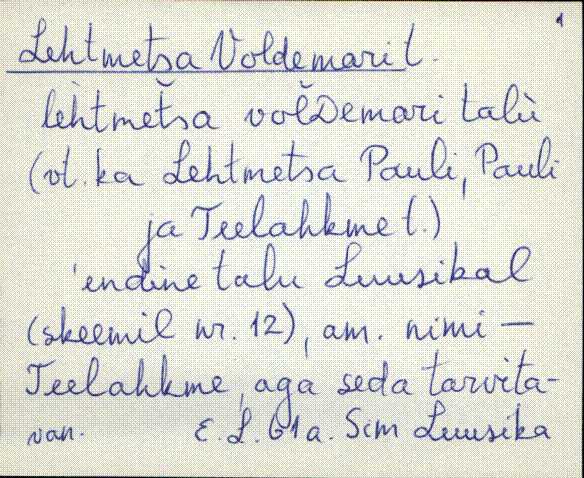 1
Lehtmetsa Voldemari t.
lèhtmet̆sa vol̆Demari talù
(vt. ka Lehtmetsa Pauli, Pauli
ja Teelahkme t.)
'endine talu Luusikal
(skeemil nr. 12), am. nimi —
Teelahkme, aga seda tarvita-
van. E. L. 61 a. Sim Luusika